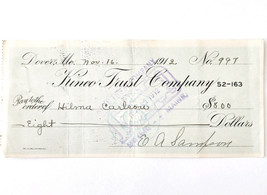 Dover, Me. Nov. 16. 1912 No. 997
Kineo Trust Company 52-163
Pay to the order of Hilma Carlson $8.00
Eight Dollars
E A Sampson